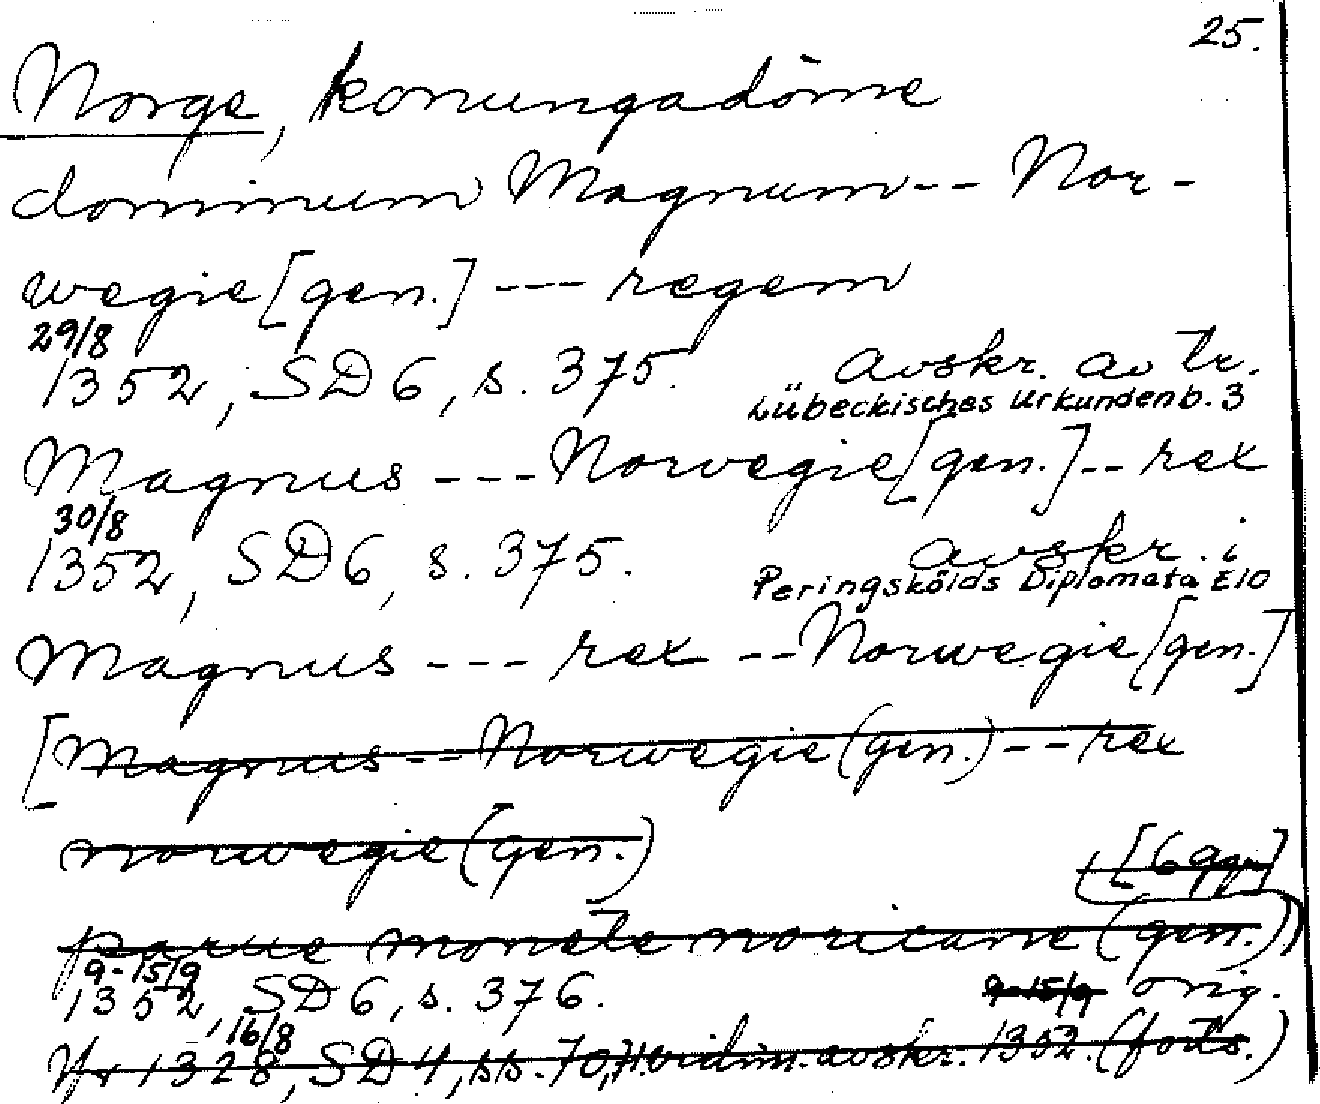 25.
Norge, konungadöme
dominum Magnum -- Nor-
wegie [gen.] --- regem
29/8
1352, SD 6, s. 375. avskr. av tr.
Lübeckisches Urkundenb. 3
Magnus --- Norwegie [gen.] -- rex
30/8
1352, SD 6, s. 375. avskr. i
Peringskölds Diplomata E10
Magnus --- rex -- Norwegie [gen.]
[Magnus -- Norwegie (gen.) -- rex
norwegie (gen.)
[6 ggr]
parue monete noricane (gen.))
9-15/9
1352, SD 6, s. 376. 9-15/9 orig.
16/8
1328, SD 4, ss. 70, 71 vidim. avskr. 1352. (forts.)